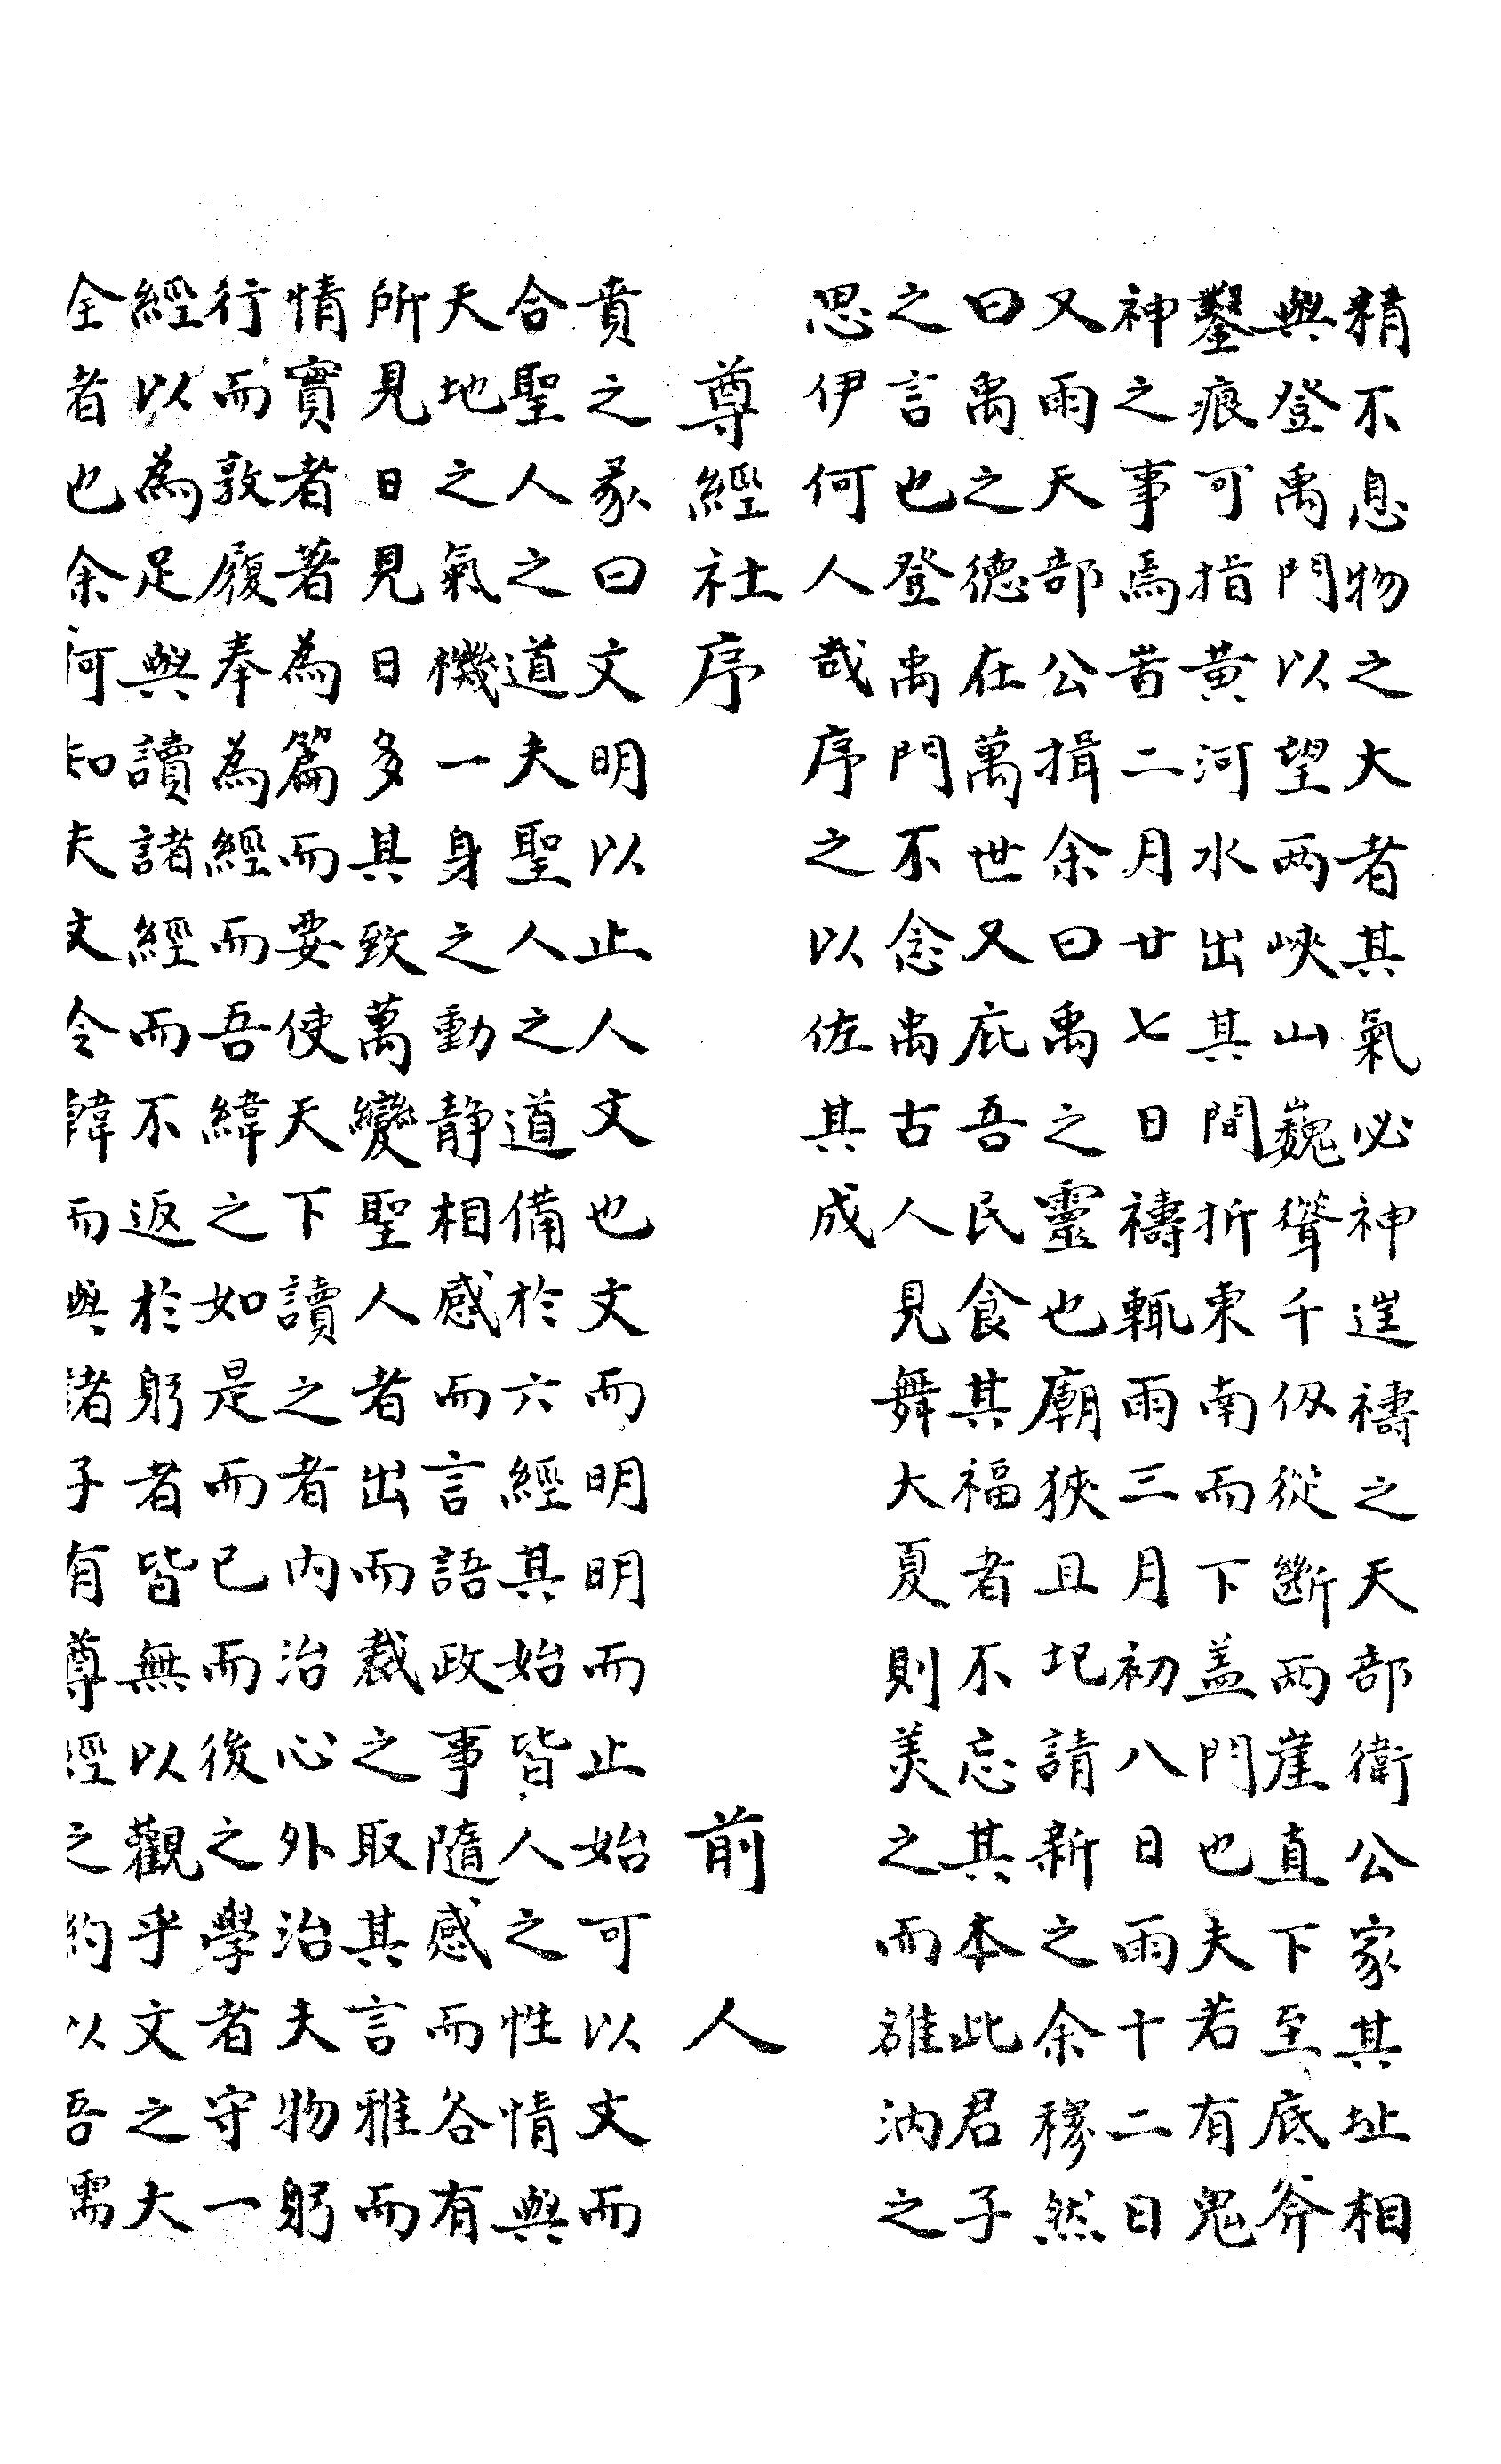 精不息物之大者其氣必神遑禱之天部衛公家其址相
與登禹門以望兩峽山巍聳千仭從斷兩崖直下至底斧
鑿痕可指黄河水出其間折東南而下盖門也夫若有鬼
神之事焉昔二月廿七日禱輒雨三月初八日雨十二日
又雨天部公揖余曰禹之靈也廟狹且圮請新之余穆然
曰禹之德在萬世又庇吾民食其福者不忘其本此君子
之言也登禹門不念禹古人見舞大夏則美之而雒汭之
思伊何人哉序之以佐其成
尊經社序 前人
賁之彖曰文明以止人文也文而明明而止始可以文而
合聖人之道夫聖人之道備於六經其始皆人之性情與
天地之氣機一身之動静相感而言語政事隨感而各有
所見日見日多其致萬變聖人者出而裁之取其言雅而
情實者著為篇而要使天下讀之者内治心外治夫物躬
行而敦履奉為經而吾緯之如是而已而後之學者守一
經以為足與讀諸經而不返於躬者皆無以觀乎文之大
全者也余何知夫文今韓而與諸子有尊經之約以吾儒